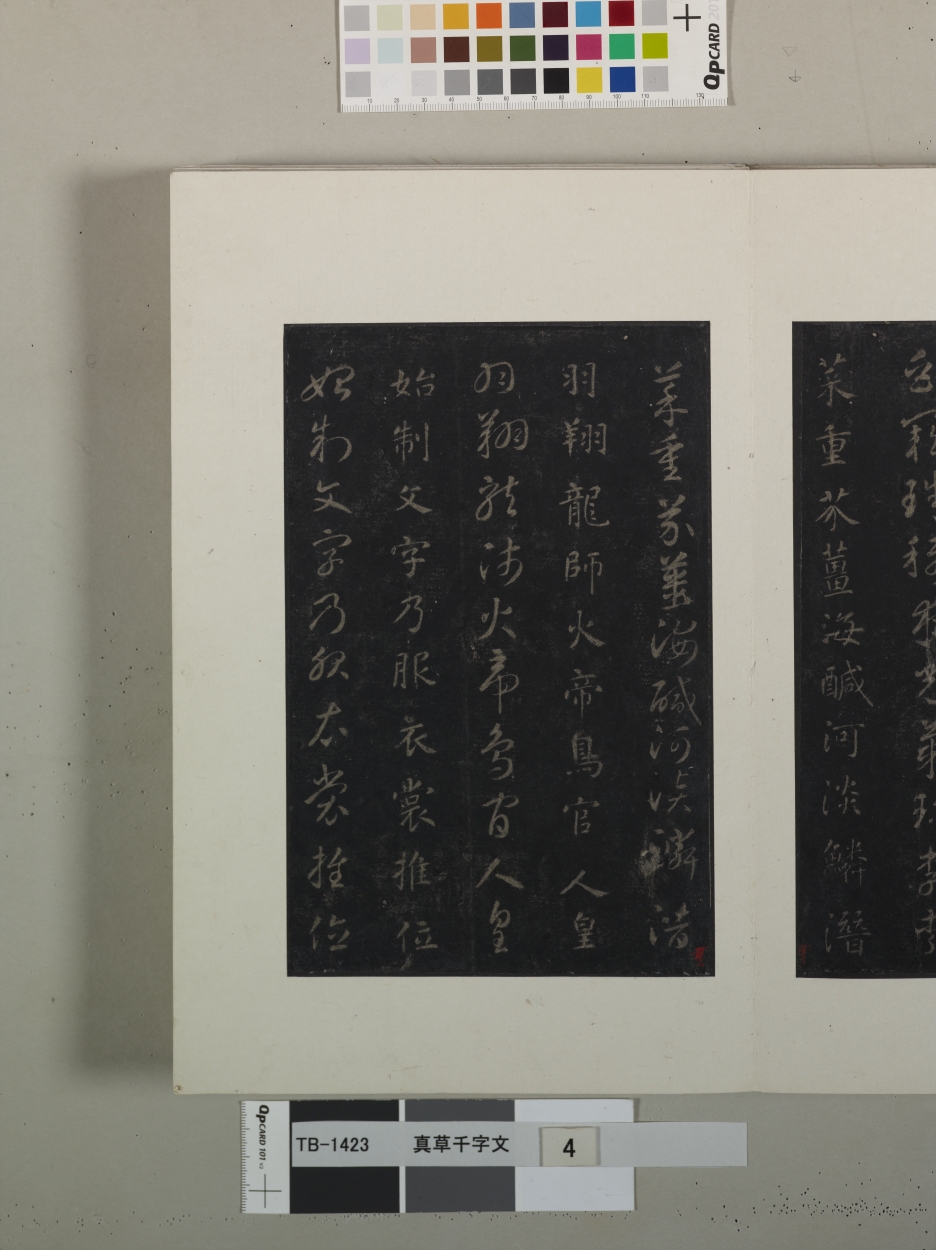 菜重芥薑海醎河淡鱗潛
菜重芥薑海醎河淡鱗潛
羽翔龍師火帝鳥官人皇
羽翔龍師火帝鳥官人皇
始制文字乃服衣裳推位
始制文字乃服衣裳推位
QPCARD 201
QPCARD 101 v3
TB-1423 真草千字文 4